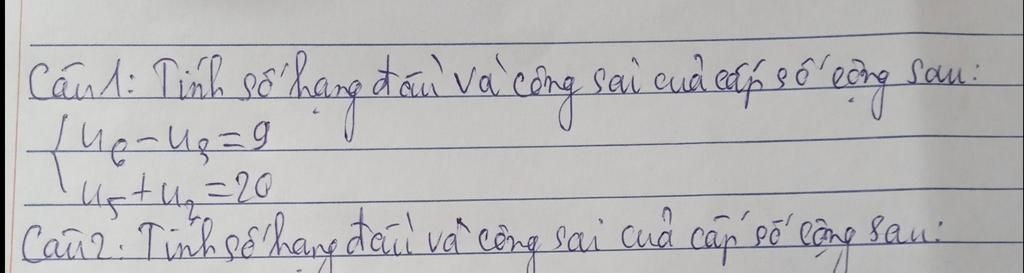 Câu 1: Tính số hạng đầu và công sai của cấp số cộng sau:
{ u₆ - u₃ = 9
u₅ + u₂ = 20
Câu 2: Tính số hạng đầu và công sai của cấp số cộng sau: